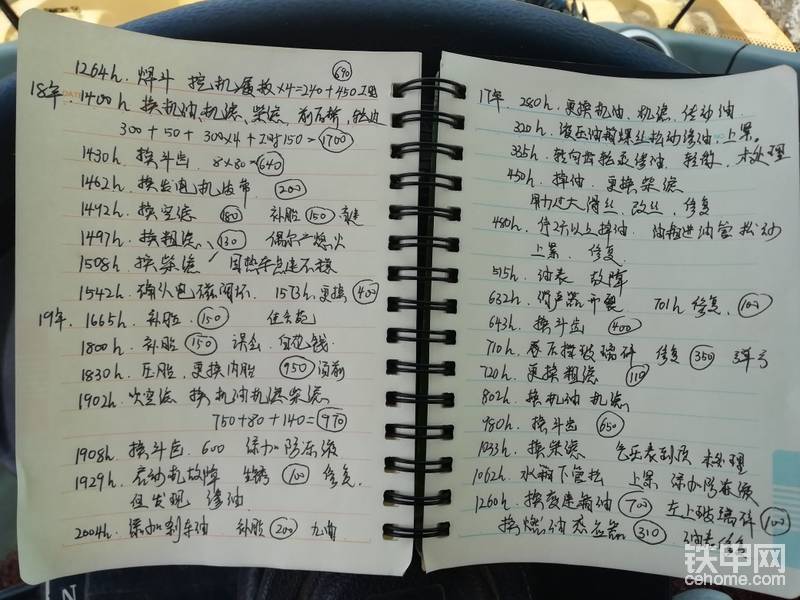 1264h. 焊斗 挖机履板×4=240+450工 690
18年. 1400h 换机油、机滤、柴滤、前后桥、轮边
300+50+300×4+工时150=1700
1430h. 换斗齿 8×80=640
1462h. 换发电机皮带 200
1492h. 换空滤 180 补胎 150
1497h. 换粗滤、130 偶尔熄火
1508h 换柴滤
1542h. 确认电磁阀坏. 1573h.更换 400
19年. 1665h. 补胎. 150
1800h. 补胎 150 误会
1830h. 压胎,更换内胎 950
1902h. 吹空滤 换机油机滤柴滤
750+80+140=970
1908h. 换斗齿. 600 添加防冻液
1929h. 启动机故障 生锈 100 修复.
但发现 渗油.
2004h. 添加刹车油 补胎 200
17年. 280h. 更换机油. 机滤. 传动油
320h. 液压油箱螺丝松动渗油,上紧。
335h. 渗油. 轻微. 未处理
450h. 掉油. 更换柴滤
用力过大滑丝. 改丝. 修复
480h. 停2h以上掉油. 油箱进油管松动
上紧. 修复
515h. 油表 故障
632h. 消声器开裂 701h 修复. 100
643h. 换斗齿 400
710h. 玻璃碎 修复 350
720h. 更换粗滤 110
802h. 换机油 机滤
980h. 换斗齿 650
1033h. 换柴滤 气压表到顶 未处理
1062h. 水箱下管松 上紧 添加防冻液
1260h. 换变速箱油 700 左上玻璃碎 100
换燃油感应器 310 油表修复
铁甲网
cehome.com
N